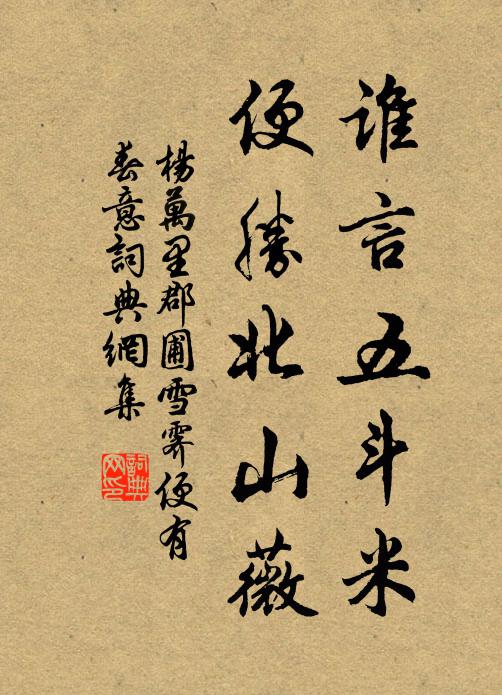 谁言五斗米
便勝北山薇
楊萬里郡圃雪霽便有
春意詞典網集
詞典
网印